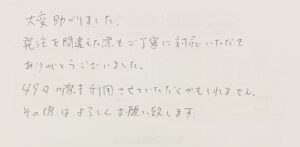 大変助かりました。
発注を間違えた際もご丁寧に対応いただき
ありがとうございました。
49日の際も利用させていただくかもしれません。
その際はよろしくお願い致します。